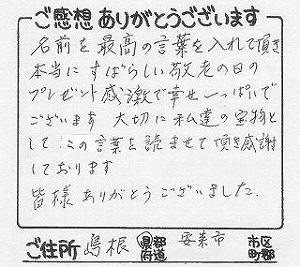 ご感想ありがとうございます
名前を最高の言葉を入れて頂き
本当にすばらしい敬老の日の
プレゼント感激で幸せいっぱいで
ございます 大切に私達の宝物と
して この言葉を読ませて頂き感謝
しております
皆様ありがとうございました.
ご住所 島根 都道府県 安来市 市区町郡